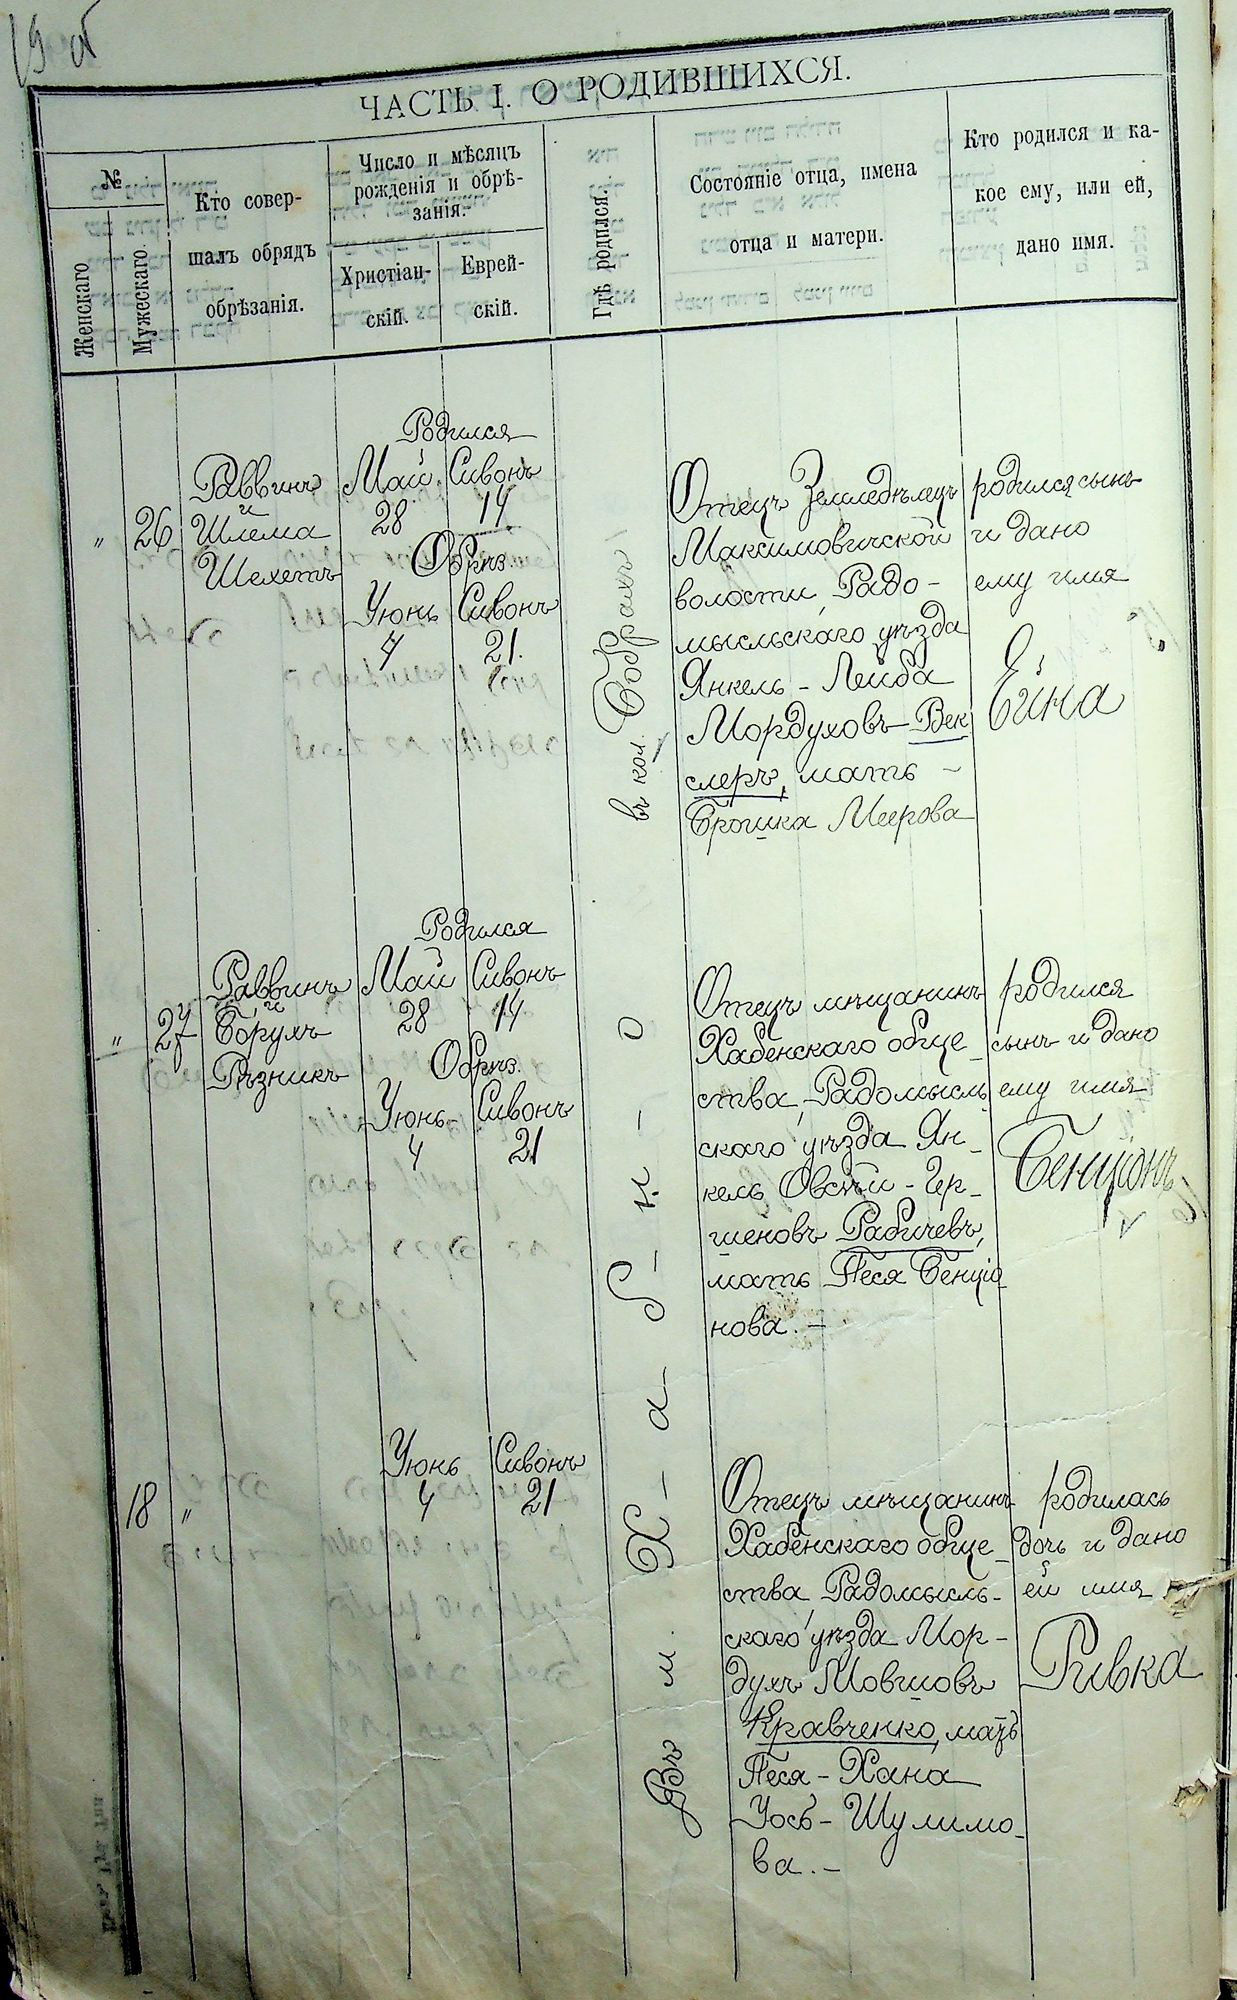 19 об
ЧАСТЬ I. О РОДИВШИХСЯ.
№
Женскаго
Мужескаго.
Кто совер-
шалъ обрядъ
обрѣзанія.
Число и мѣсяцъ
рожденія и обрѣ-
занія.
Христіан-
скій.
Еврей-
скій.
Гдѣ родился.
Состояніе отца, имена
отца и матери.
Кто родился и ка-
кое ему, или ей,
дано имя.
"
26
Раввинъ
и
Шлема
Шехетъ
Родился
Май Сивонъ
28 14
Обрѣз.
Іюнь Сивонъ
4 21.
въ кол. Бобрахъ
Отецъ Земледѣлецъ
Максимовичской
волости, Радо-
мысльскаго уѣзда
Янкель-Лейба
Мордуховъ Век
слеръ, мать -
Брошка Меерова
родился сынъ
и дано
ему имя
Ейна
"
27
Раввинъ
и
Борухъ
Рѣзникъ
Родился
Май Сивонъ
28 14
Обрѣз.
Іюнь Сивонъ
4 21
Отецъ мѣщанинъ
Хабенскаго обще-
ства, Радомысль
скаго уѣзда Ян-
кель Овсѣй-Гер-
шеновъ Рабичевъ,
мать Песя Бенціо
нова. -
родился
сынъ и дано
ему имя
Бенціонъ
18
"
Іюнь Сивонъ
4 21
Въ м. Х-а-б-н-о
Отецъ мѣщанинъ
Хабенскаго обще-
ства Радомысль-
скаго уѣзда Мор-
духъ Мовшовъ
Кравченко, мать
Песя-Хана
Іось-Шулимо-
ва. -
родилась
дочь и дано
ей имя
Ривка